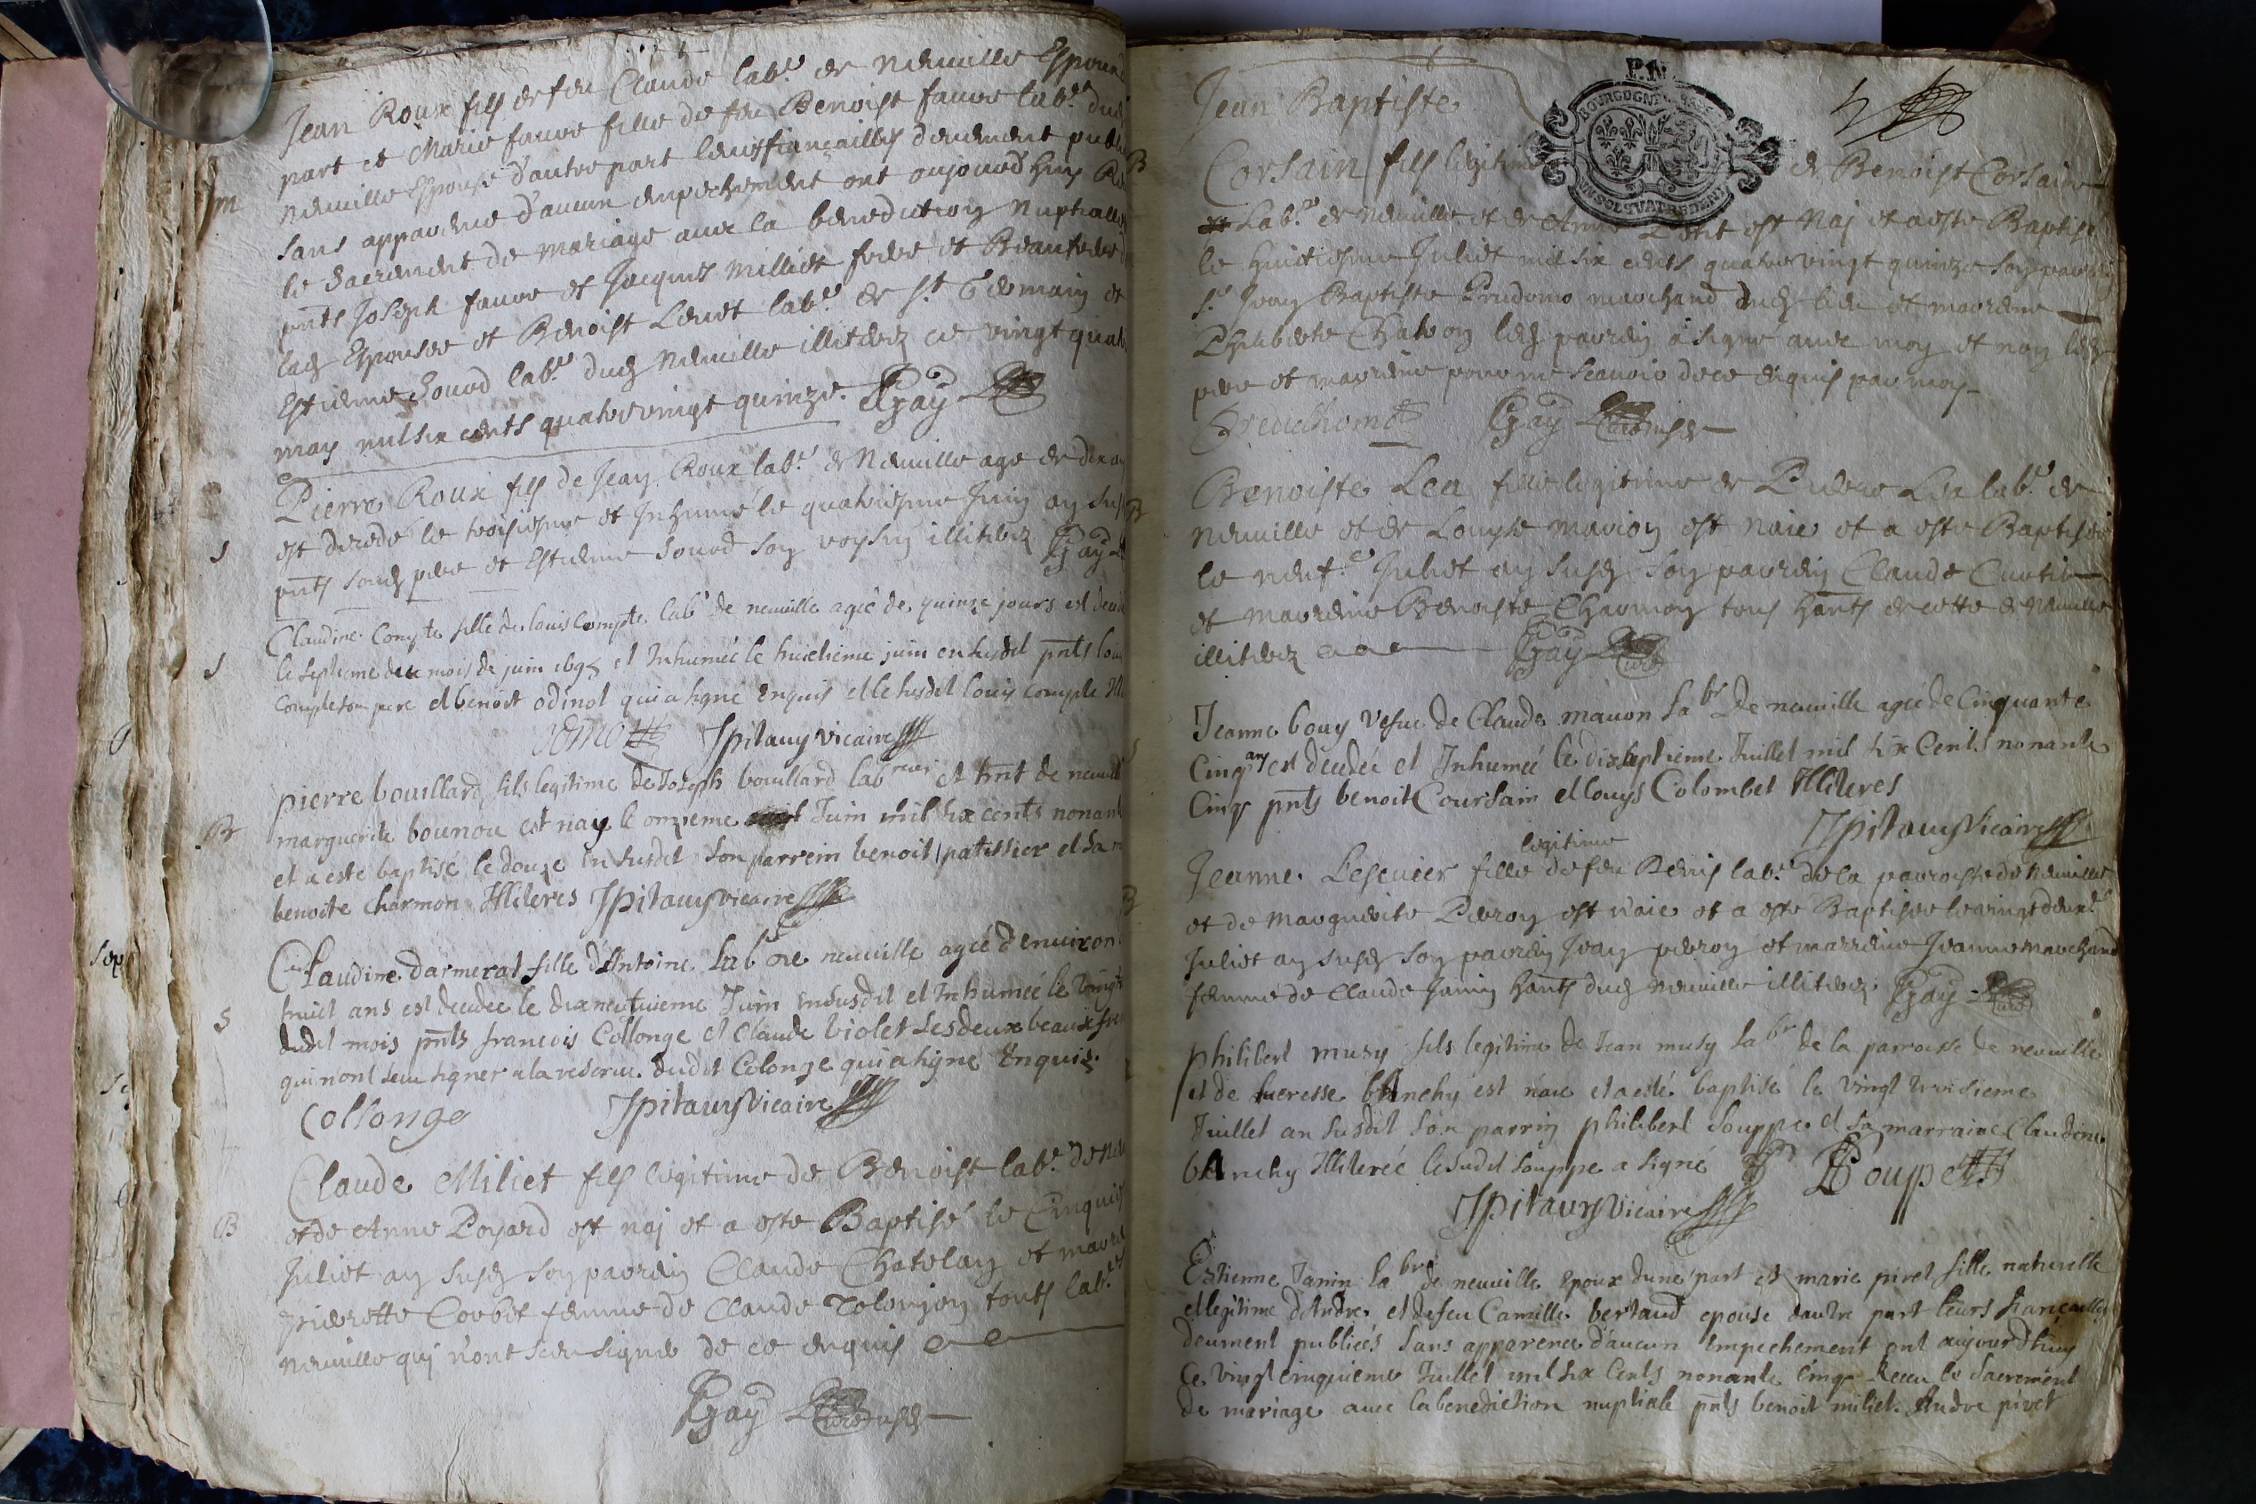 Jean Roux fils de feu Claude lab.r de Neuville Espoux
part et Marie favre fille de feu Benoist favre lab.r dud
m
Neuville Espouse d'autre part leurs fiançailles deuement publ
sans apparence d'aucun empechement ont aujourd'huy Re
le Sacrement de mariage avec la benediction Nuptialle
pnts Joseph favre et Jacques Milliet frere et Beaufrere d
lad Espouse et Benoist Leuet lab.r de St Germain et
Estienne Souod lab.r dud Neuville illiterez ce vingt quat
may mil six cents quatre vingt quinze. Gay
Pierre Roux fils de Jean Roux lab.r de Neuville age de dix
S
est decedé le troisiesme et Inhumé le quatriesme Juin an sus
pnts soud pere et Estienne Souod son voysin illiterez Gay
Claudine Compte fille de louis Compte lab.r de neuville agée de quinze jours est deced
S
le septieme du mois de juin 1695 et Inhumée le huictieme juin en susdit pnts lou
Compte son pere et benoist odinot qui a signé Enquis et le susdit louis compte Ill
JPitauy vicaire
pierre bouillard fils legitime de Joseph bouillard laboureur et hnt de neuvill
B
marguerite bounou est nay le onzieme Juin mil six cents nonant
et a esté baptisé le douze en susdit son parrein benoit patissier et sa m
benoite charmon Illiteres JPitauy vicaire
Claudine darmerat fille d'Antoine lab de neuville agée d'environ
huict ans est decedee le dixneufvieme Juin en susdit et Inhumée le Vingt
S
dudit mois pnts francois Collonge et Claude violet ses deux beaux fre
qui n'ont sceu signer a la reserve dudit Colonge qui a signé Enquis.
Collonge JPitauy Vicaire
Claude Miliet fils legitime de Benoist lab.r de Neu
et de Anne Poyard est naj et a esté Baptisé le Cinquies
B
Juliet an susd son parrein Claude Chatelay et marr
pierrette Corbet femme de Claude Tolonjon touts lab.rs
Neuville qui n'ont sceu signé de ce enquis
Gay Curé susd
P.N.
BOURGOGNE
Jean Baptiste
Corsain fils legitime de Benoist Corsain
B
Lab.r de Neuville et de Anne Petit est Naj et a esté Baptisé
le huictiesme Juliet mil six cents quatre vingt quinze son parrein
Sr Jean Baptiste Prudomo marchand dud lieu et marreine
Philiberte Chalvon led parrein a signé avec moy et non led
pere et marreine pour ne scavoir de ce enquis par moy
Preudhomo Gay Curé susd
Benoiste Lea fille legitime de Pierre Lea lab.r de
B
Neuville et de Louyse marion est naie et a esté Baptisée
le neuf.e Juliet an susd son parrein Claude Curtil
et marreine Benoiste Charmon tous hants de cette de Neuville
illiterez Gay Curé
Jeanne bouy vesve de Claude mauon lab.r De neuville agée de Cinquante
S
Cinq ans est decedée et Inhumée le dixseptieme Juillet mil six Cents nonante
Cinq pnts benoit Coursain et Louys Colombet Illiteres
JPitauy Vicaire
legitime
Jeanne Lescuier fille de feu Denis lab.r de la parroisse de Neuville
B
et de Marguerite Perron est naie et a esté Baptisée le vingt deux.e
Juliet an susd son parrein Jean perron et marreine Jeanne marchand
femme de Claude Janin hants dud Neuville illiterez. Gay Curé
philibert musy fils legitime de Jean musy lab.r de la parroisse de neuville
et de lucresse blanchy est née et a esté baptisé le vingt troisieme
Juillet an susdit son parrin philibert souppe et sa marraine Claudine
blanchy Illiterée le sudit souppe a signé Soupe
JPitauy Vicaire
Estienne Janin lab.r de neuville epoux dune part et marie pivet fille naturelle
et legitime d'Andre et de feu Camille bertaud epouse dautre part leurs fiancailles
deument publiées sans apparence d'aucun empechement ont aujourd'huy
Ce vingt cinquieme Juillet mil six Cents nonante Cinq Receu le Sacrement
de mariage avec la benediction nuptiale pnts benoit miliet Andre pivet